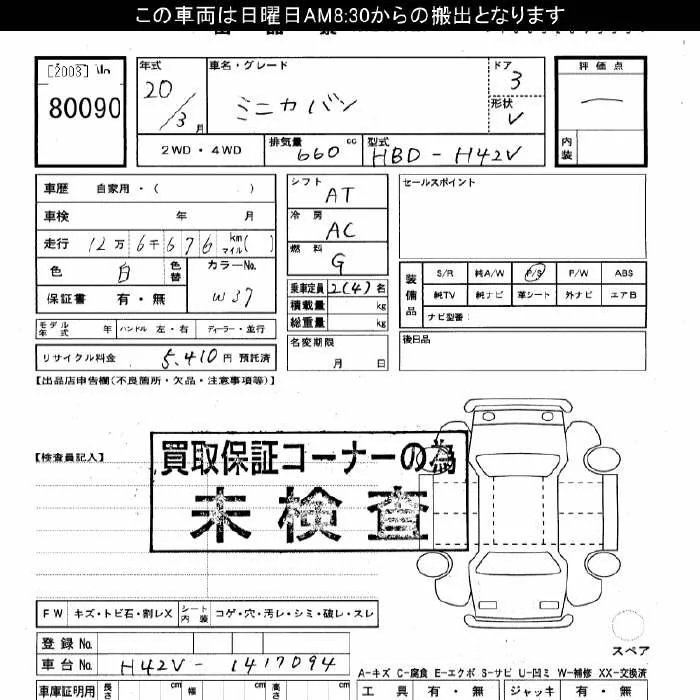 この車両は日曜日AM8:30からの搬出となります
[2003]
80090
年式
20/3月
車名・グレード
ミニカバン
ドア
3
形状
V
評価点
内装
2WD・4WD
排気量 660 cc
型式 HBD-H42V
車歴 自家用・( )
車検 年 月
走行 12万6千676 km マイル( )
色 白 色替
カラーNo. W37
保証書 有・無
シフト AT
冷房 AC
燃料 G
乗車定員 2(4)名
積載量 kg
総重量 kg
セールスポイント
装備品
S/R 純A/W P/S P/W ABS
純TV 純ナビ 革シート 外ナビ エアB
ナビ型番:
モデル年式 年 ハンドル 左・右 ディーラー・並行
名変期限 月 日
後日品
リサイクル料金 5,410円 預託済
【出品店申告欄(不良箇所・欠品・注意事項等)】
【検査員記入】
買取保証コーナーの為
未検査
FW キズ・トビ石・割レX シート内装 コゲ・穴・汚レ・シミ・破レ・スレ
スペア
登録No.
車台No. H42V-1417094
A-キズ C-腐食 E-エクボ S-サビ U-凹ミ W-補修 XX-交換済
車庫証明用 長さ cm 幅 cm 高さ cm
工具 有・無 ジャッキ 有・無